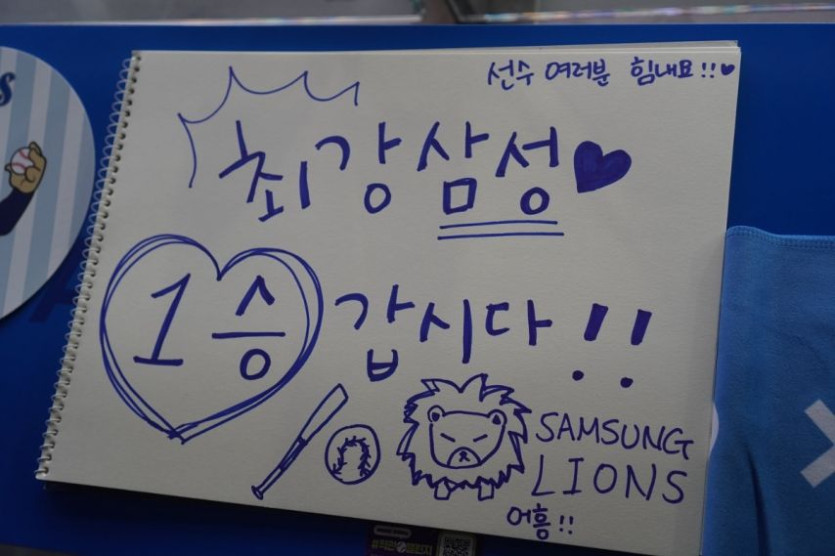 선수 여러분 힘내요!!♥
최강삼성♥
1승 갑시다!!
SAMSUNG
LIONS
어흥!!